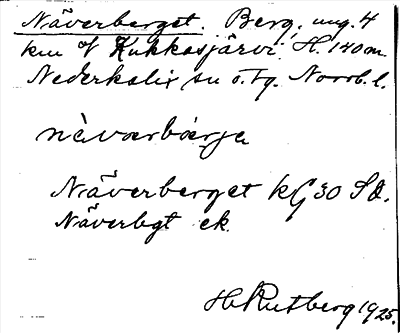 Näverberget. Berg, ung. 4
km Kukkasjärvi. H. 140 m.
Nederkalix sn o. tg. Norrb. l.
nàvərbárja
Näverberget kG 30 SO.
Näverbgt ek.
H. Rutberg 1925.